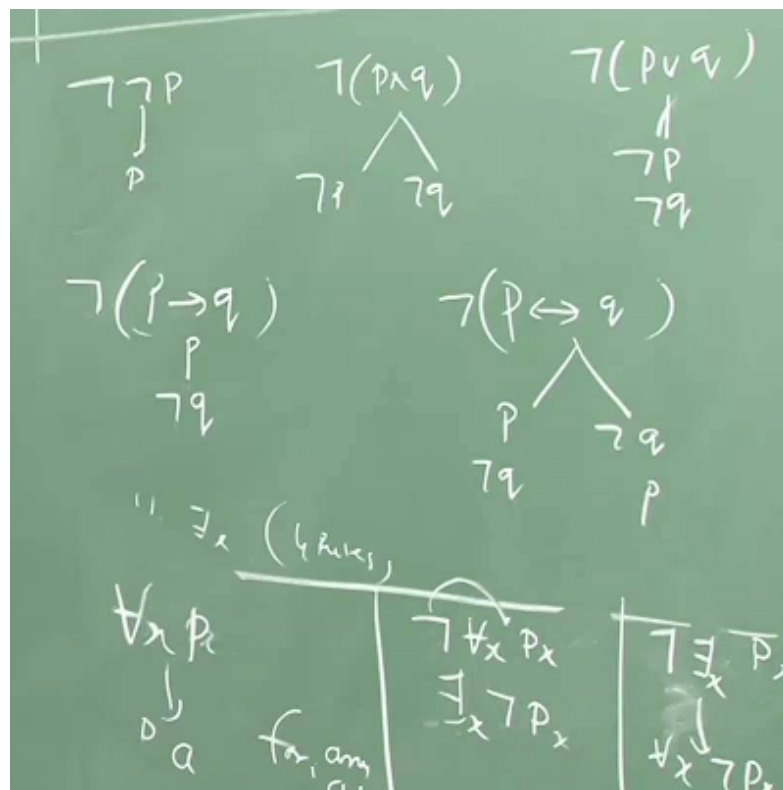 ¬¬P
P
¬(P∧q)
¬P ¬q
¬(P∨q)
¬P
¬q
¬(P→q)
P
¬q
¬(P↔q)
P ¬q
¬q P
" ∃x (4 Rules)
∀x Px
a
for any
¬∀x Px
∃x ¬Px
¬∃x Px
∀x ¬Px